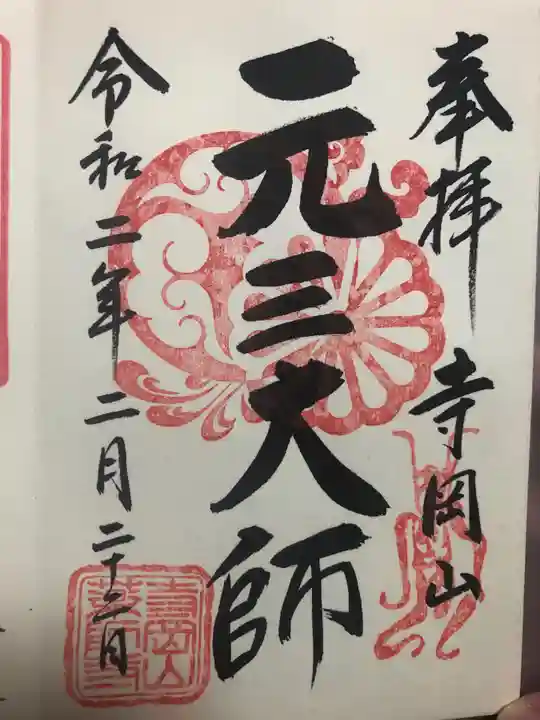 奉拝 寺岡山
元三大師
令和二年 二月二十三日